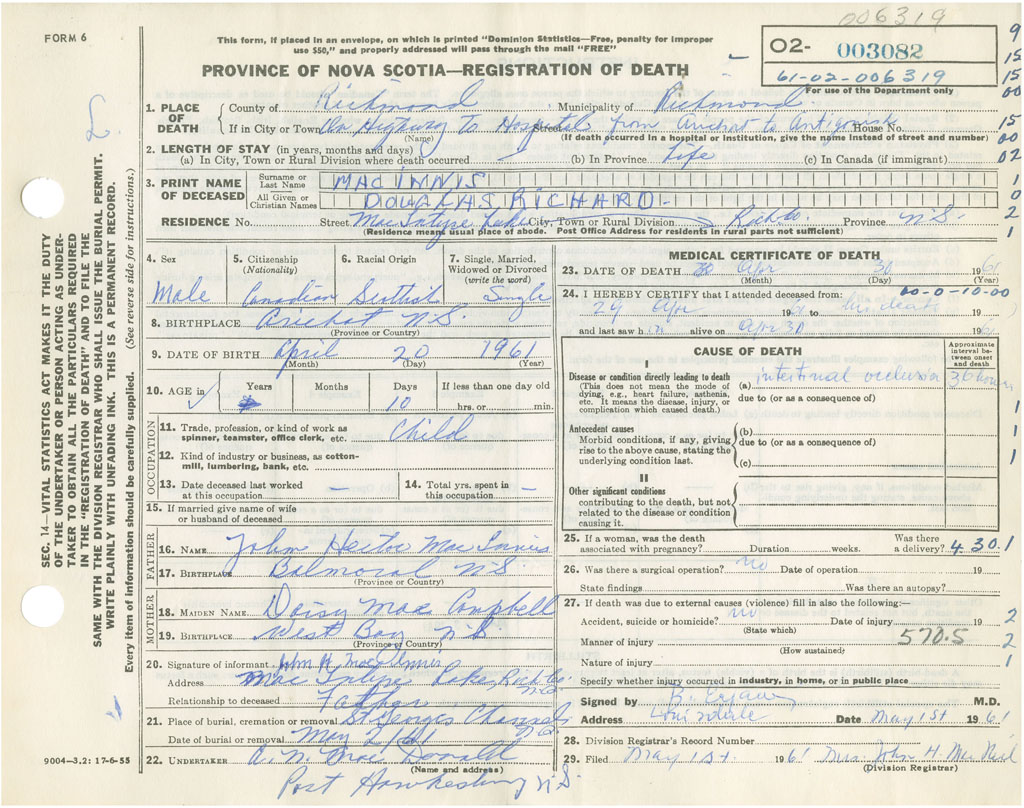 006319
FORM 6
This form, if placed in an envelope, on which is printed "Dominion Statistics—Free, penalty for improper
use $50," and properly addressed will pass through the mail "FREE"
O2- 003082
61-02-006319
For use of the Department only
PROVINCE OF NOVA SCOTIA—REGISTRATION OF DEATH
1. PLACE OF DEATH County of Richmond Municipality of Richmond
If in City or Town On Highway To Hospital from Arichat to Antigonish Street House No.
(Name) (If death occurred in a hospital or institution, give the name instead of street and number)
2. LENGTH OF STAY (in years, months and days)
(a) In City, Town or Rural Division where death occurred (b) In Province Life (c) In Canada (if immigrant)
3. PRINT NAME OF DECEASED
Surname or Last Name MACINNIS
All Given or Christian Names DOUGLAS, RICHARD
RESIDENCE No. Street MacIntyre Lake City, Town or Rural Division Rich Co. Province N.S.
(Residence means usual place of abode. Post Office Address for residents in rural parts not sufficient)
4. Sex Male
5. Citizenship (Nationality) Canadian
6. Racial Origin Scottish
7. Single, Married, Widowed or Divorced (write the word) Single
8. BIRTHPLACE Arichat N.S.
(Province or Country)
9. DATE OF BIRTH April 20 1961
(Month) (Day) (Year)
10. AGE in Years Months Days 10 If less than one day old hrs. or min.
OCCUPATION
11. Trade, profession, or kind of work as spinner, teamster, office clerk, etc. Child
12. Kind of industry or business, as cotton-mill, lumbering, bank, etc.
13. Date deceased last worked at this occupation —
14. Total yrs. spent in this occupation —
15. If married give name of wife or husband of deceased
FATHER
16. NAME John Hector MacInnis
17. BIRTHPLACE Balmoral N.S.
(Province or Country)
MOTHER
18. MAIDEN NAME Daisy Mae Campbell
19. BIRTHPLACE West Bay N.S.
(Province or Country)
20. Signature of informant John H. MacInnis
Address MacIntyre Lake, Rich Co. N.S.
Relationship to deceased Father
21. Place of burial, cremation or removal St Georges Channel N.S.
Date of burial or removal May 2/61
22. UNDERTAKER A. N. MacDonald
(Name and address)
Port Hawkesbury N.S.
9004—3.2: 17-6-55
MEDICAL CERTIFICATE OF DEATH
23. DATE OF DEATH Apr 30 1961
(Month) (Day) (Year)
00-0-10-00
24. I HEREBY CERTIFY that I attended deceased from:
29 Apr 19 to his death 19
and last saw him alive on Apr 30 1961
CAUSE OF DEATH
Approximate interval between onset and death
I
Disease or condition directly leading to death (a) intestinal occlusion 36 hours
(This does not mean the mode of dying, e.g., heart failure, asthenia, etc. It means the disease, injury, or complication which caused death.)
due to (or as a consequence of)
Antecedent causes
Morbid conditions, if any, giving rise to the above cause, stating the underlying condition last.
(b)
due to (or as a consequence of)
(c)
II
Other significant conditions
contributing to the death, but not related to the disease or condition causing it.
25. If a woman, was the death associated with pregnancy? Duration weeks. Was there a delivery? 4.30.1
26. Was there a surgical operation? no Date of operation 19
State findings Was there an autopsy?
27. If death was due to external causes (violence) fill in also the following:—
Accident, suicide or homicide? no Date of injury 19
(State which)
Manner of injury 570.5
(How sustained)
Nature of injury
Specify whether injury occurred in industry, in home, or in public place
Signed by M.D.
Address Louisdale Date May 1st 1961
28. Division Registrar's Record Number
29. Filed May 1st 1961 Mrs John H. MacNeil
(Division Registrar)
SEC. 14—VITAL STATISTICS ACT MAKES IT THE DUTY
OF THE UNDERTAKER OR PERSON ACTING AS UNDER-
TAKER TO OBTAIN ALL THE PARTICULARS REQUIRED
IN THE "REGISTRATION OF DEATH" AND TO FILE THE
SAME WITH THE DIVISION REGISTRAR WHO SHALL ISSUE THE BURIAL PERMIT.
WRITE PLAINLY WITH UNFADING INK. THIS IS A PERMANENT RECORD.
Every item of information should be carefully supplied. (See reverse side for instructions.)
9
15
15
00
15
00
02
1
0
2
1
1
1
1
1
2
2
1